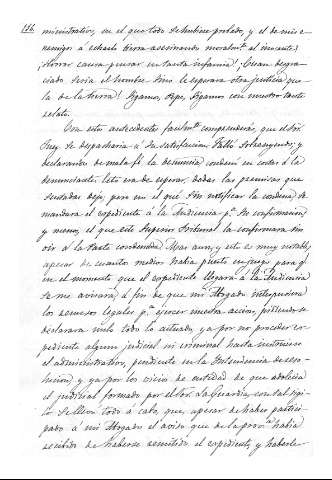 116.
ministrativo, en el que todo se hubiese probado, y el de mis e-
nemigos á echarle tierra asesinando moralm.te al incauto!
¡Horror causa pensar en tanta infamia! ¡Cuan desgra-
ciado sería el hombre si no le esperara otra justicia que
la de la tierra! Sigamos, Pepe, sigamos con nuestro triste
relato.
Con estos antecedentes facilm.te comprenderás, que el Sor.
Juez se despacharía á su satisfaccion. Falló sobreseyendo, y
declarando de mala fé la denuncia condenó en costas á la
denunciante. Esto era de esperar, dadas las premisas que
sentadas dejo, pero en el que sin notificar la condena se
mandara el expediente á la Audiencia p.a su confirmacion,
y menos, el que este Superior Tribunal la confirmara sin
oir á la parte condenada. Mas aun, y esto es muy notable,
apesar de cuantos medios habia puesto en juego para q.e
en el momento que el expediente llegara á la Audiencia
se me avisara, á fin de que mi Abogado interpusiera
los remedios legales p.a ejercer nuestra accion, pidiendo se
declarara nulo todo lo actuado, ya por no proceder ex-
pediente alguno judicial ni criminal hasta instruirse
el administrativo, pendiente en la Intendencia de reso-
lucion, y ya por los vicios de nulidad de que adolecía
el judicial formado por el Sor. La Guardia, con tal sigi-
lo se llevó todo á cabo, que, apesar de haber partici-
pado á mi Abogado el aviso que de la prov.a habia
recibido de haberse remitido el expediente, y haberle